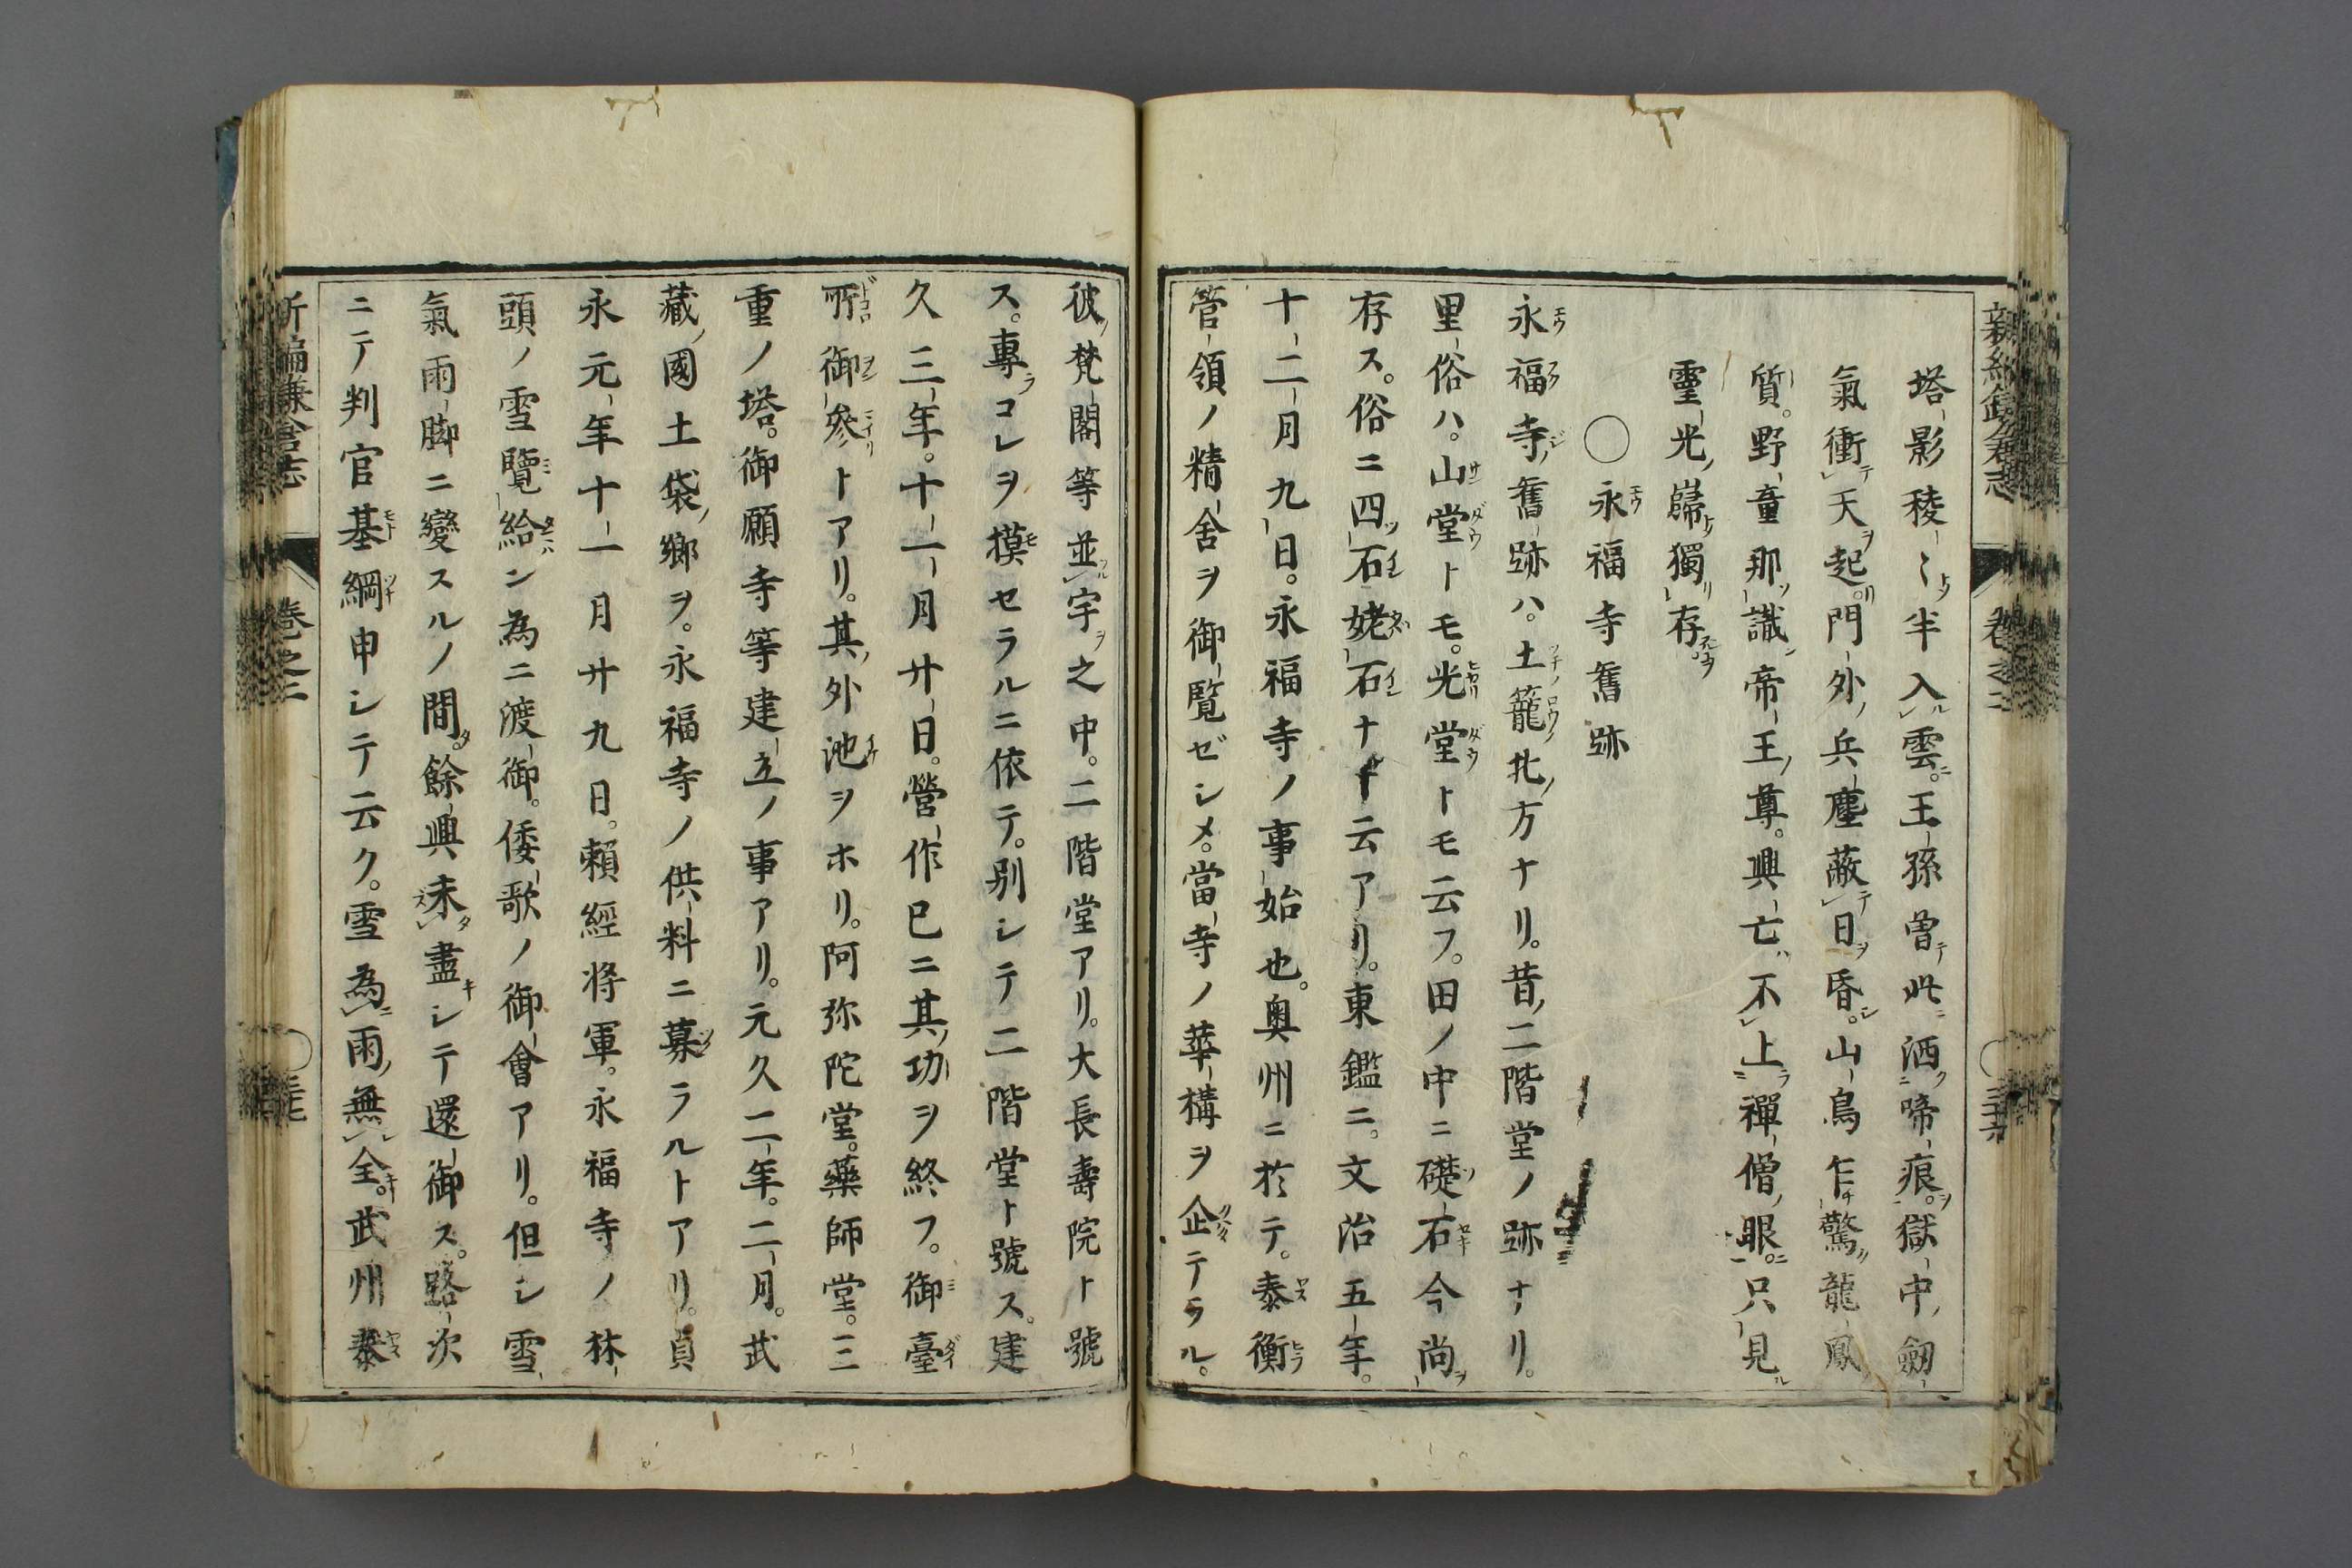 塔影稜〻半入雲。王孫曽此洒啼痕。獄中劔
氣衝天起。門外兵塵蔽日昏。山鳥乍驚龍鳳
質。野童那識帝王尊。興亡不上禪僧眼。只見
靈光巋獨存。
○永福寺舊跡
永福寺舊跡ハ。土籠北方ナリ。昔二階堂ノ跡ナリ。
里俗ハ。山堂トモ。光堂トモ云フ。田ノ中ニ礎石今尚
存ス。俗ニ四石姥石ナド云アリ。東鑑ニ。文治五年。
十二月九日。永福寺ノ事始也。奥州ニ於テ。泰衡
管領ノ精舎ヲ御覧ゼシメ。當寺ノ華構ヲ企テラル。
彼梵閣等並宇之中。二階堂アリ。大長壽院ト號
ス。專コレヲ摸セラルニ依テ。別シテ二階堂ト號ス。建
久三年。十一月廿日。營作已ニ其功ヲ終フ。御臺
所御參トアリ。其外池ヲホリ。阿弥陀堂。藥師堂。三
重ノ塔。御願寺等建立ノ事アリ。元久二年。二月。武
藏國土袋郷ヲ。永福寺ノ供料ニ募ラルトアリ。貞
永元年十一月廿九日。頼經将軍。永福寺ノ林
頭ノ雪覽給ン為ニ渡御。倭歌ノ御會アリ。但シ雪
氣雨脚ニ變スルノ間。餘興未盡シテ還御ス。路次
ニテ判官基綱申シテ云ク。雪為雨無全。武州泰
新編鎌倉志
卷之二
○三十七